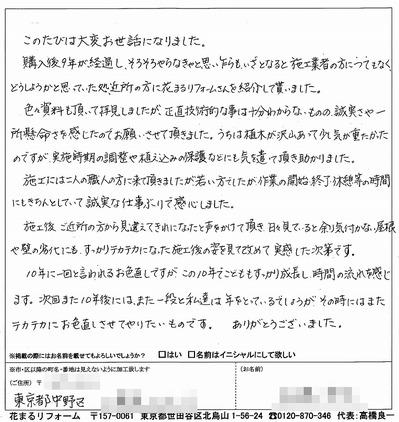 このたびは大変お世話になりました。
購入後9年が経過し、そろそろやらなきゃと思いながらもいざとなると施工業者の方につてもなく、
どうしようかと思っていた処近所の方に花まるリフォームさんを紹介して貰いました。
色々資料も頂いて拝見しましたが、正直技術的な事は十分わからないものの、誠実さや一
所懸命さを感じたのでお願いさせて頂きました。うちは植木が沢山あって少し気が重たかった
のですが、実施時期の調整や植え込みの保護などにも気を遣て頂き助かりました。
施工には二人の職人の方に来て頂きましたが若い方でしたが作業の開始、終了、休憩等の時間
にもきちんとしていて誠実な仕事ぶりで感心しました。
施工後、ご近所の方から見違えてきれいになったと声をかけて頂き、日々見ていると余り気付かない屋根
や壁の劣化にも、すっかりテカテカになった施工後の姿を見て改めて実感した次第です。
10年に一回と言われるお色直しですが、この10年でこどももすっかり成長し、時間の流れを感じ
ます。次回また10年後には、また一段と私達は年をとっているでしょうが、その時にはまた
テカテカにお色直しさせてやりたいものです。 ありがとうございました。
※掲載の際にはお名前を載せてもよろしいでしょうか? □はい □名前はイニシャルにして欲しい
※市・区以降の町名・番地は見えないように加工致します
(ご住所) 〒
(お名前)
東京都中野区
花まるリフォーム 〒157-0061 東京都世田谷区北烏山1-56-24 ☎0120-870-346 代表:高橋良一